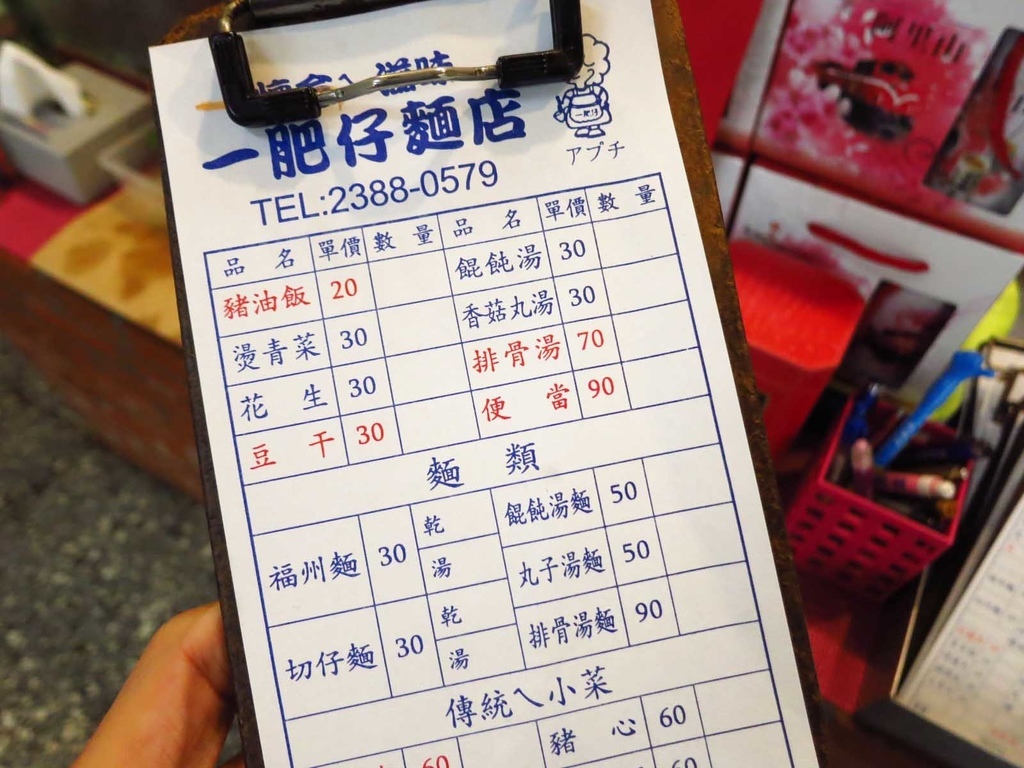 懷念ㄟ滋味
一肥仔麵店
一肥仔
アプチ
TEL:2388-0579
品名 單價 數量 品名 單價 數量
豬油飯 20 餛飩湯 30
燙青菜 30 香菇丸湯 30
花生 30 排骨湯 70
豆干 30 便當 90
麵類
福州麵 30 乾 湯 餛飩湯麵 50
丸子湯麵 50
切仔麵 30 乾 湯 排骨湯麵 90
傳統ㄟ小菜
60 豬心 60
60
阿里山